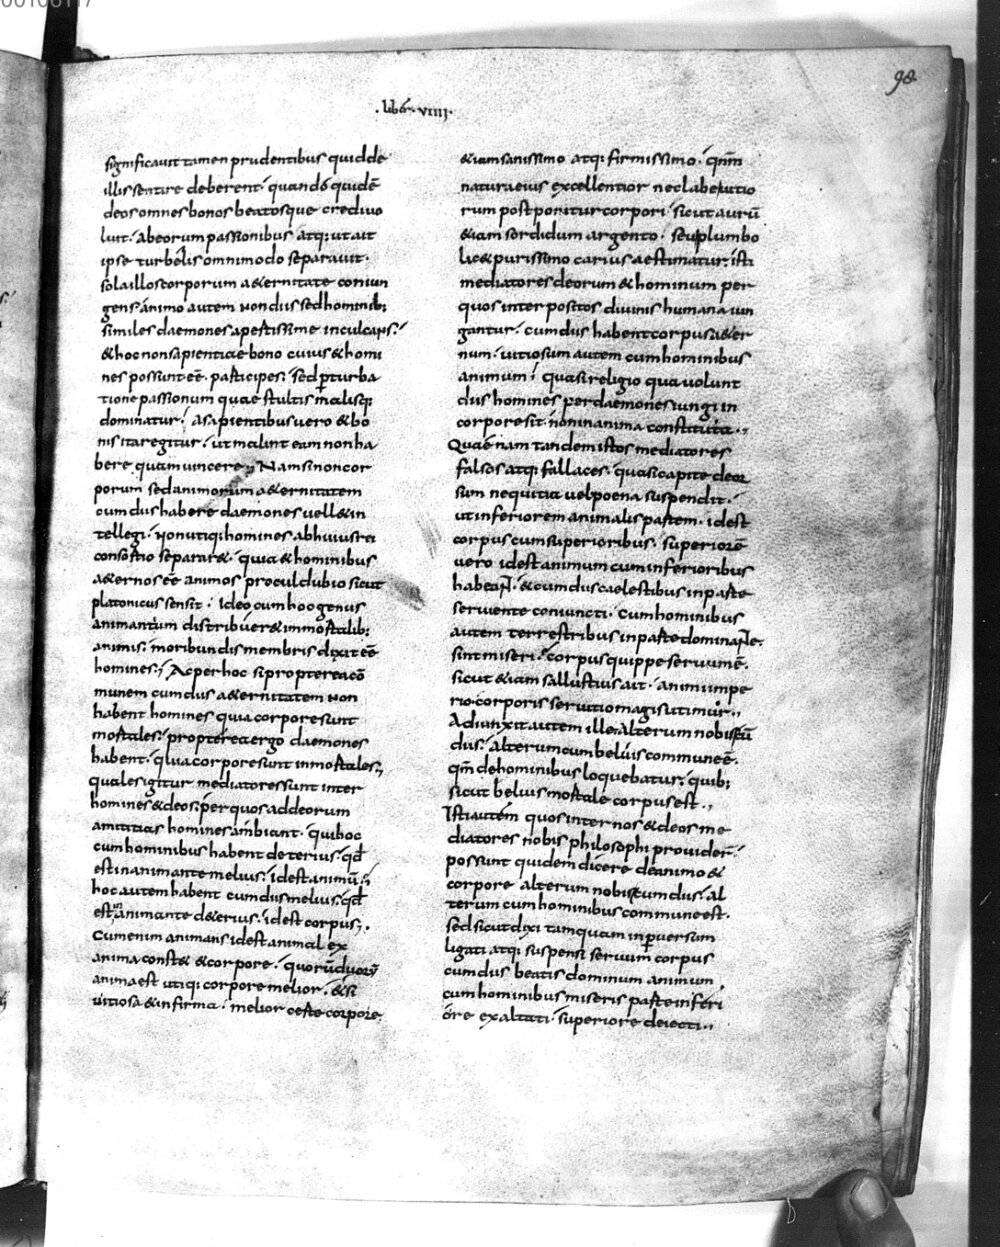 00106117
98
·liber·viiii·
significavit tamen prudentibus quid de
illis sentire deberent· quando quidē
deos omnes bonos beatosque credi vo
luit· ab eorum passionibus atq; ut ait
ipse turbelis omnimodo separavit·
sola illos corporum aeternitate coniun
gens· animo autem non diis sed hominib;
similes daemones apertissime inculcans·
& hoc non sapientiae bono cuius & homi
nes possunt eē participes· sed perturba
tione passionum quae stultis malisq;
dominatur· a sapientibus vero & bo
nis ita regitur· ut malint eam non ha
bere quam vincere· Nam si non cor
porum sed animorum aeternitatem
cum diis habere daemones vellet in
tellegi· non utiq; homines ab huius rei
consortio separaret· quia & hominibus
aeternos eē animos procul dubio sicut
platonicus sensit· Ideo cum hoc genus
animantum distribueret immortalib;
animis· moribundis membris dixit eē
homines· Ac per hoc si propterea cō
munem cum diis aeternitatem non
habent homines quia corpore sunt
mortales· propterea ergo daemones
habent· quia corpore sunt inmortales·
quales igitur mediatores sunt inter
homines & deos· per quos ad deorum
amicitias homines ambiant· qui hoc
cum hominibus habent deterius· qđ
est in animante melius· id est animū·
hoc autem habent cum diis melius· qđ
est in animante deterius· id est corpus·
Cum enim animans id est animal ex
anima constet & corpore· quorū duorum
anima est utiq; corpore melior· & si
vitiosa & infirma· melior certe corpore
etiam sanissimo atq; firmissimo· qnm
natura eius excellentior nec labe vitio
rum postponitur corpori· sicut aurū
etiam sordidum argento· seu plumbo
licet purissimo carius aestimatur· isti
mediatores deorum & hominum per
quos interpositos divinis humana iun
gantur· cum diis habent corpus aeter
num· vitiosum autem cum hominibus
animum· quasi religio qua volunt
diis homines per daemones iungi in
corpore sit· non in anima constituta·
Quae nam tandem istos mediatores
falsos atq; fallaces· quasi capite deor
sum nequitia vel poena suspendit·
ut inferiorem animalis partem· id est
corpus cum superioribus· superiorē
vero id est animum cum inferioribus
habeant· & cum diis caelestibus in parte
serviente coniuncti· cum hominibus
autem terrestribus in parte dominante
sint miseri· corpus quippe servum ē·
sicut etiam sallustius ait· animi impe
rio· corporis servitio magis utimur·
Adiunxit autem ille· alterum nobis cū
diis· alterum cum beluis commune ē·
qm de hominibus loquebatur· quib;
sicut beluis mortale corpus est·
Isti autem quos inter nos & deos me
diatores nobis philosophi providerunt·
possunt quidem dicere de animo &
corpore alterum nobis cum diis· al
terum cum hominibus commune est·
sed sicut dixi tamquam in perversum
ligati atq; suspensi servum corpus
cum diis beatis dominum animum
cum hominibus miseris parte inferi
ore exaltati· superiore deiecti·